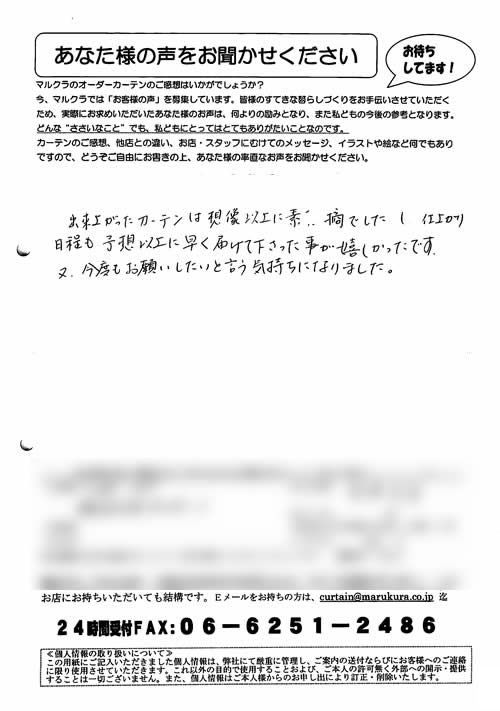 あなた様の声をお聞かせください
お待ち
してます!
マルクラのオーダーカーテンのご感想はいかがでしょうか?
今、マルクラでは「お客様の声」を募集しています。皆様のすてきな暮らしづくりをお手伝いさせていただく
ため、実際にお求めいただいたあなた様のお声は、何よりの励みとなり、また私どもの今後の参考となります。
どんな“ささいなこと”でも、私どもにとってはとてもありがたいことなのです。
カーテンのご感想、他店との違い、お店・スタッフにむけてのメッセージ、イラストや絵など何でもあり
ですので、どうぞご自由にお書きの上、あなた様の率直なお声をお聞かせください。
出来上がったカーテンは想像以上に素 摘でしたし 仕上がり
日程も予想以上に早く届けて下さった事が嬉しかったです.
又.今度もお願いしたいと言う気持ちになりました。
お店にお持ちいただいても結構です。Eメールをお持ちの方は、curtain@marukura.co.jp 迄
24時間受付FAX:06-6251-2486
≪個人情報の取り扱いについて≫
この用紙にご記入いただきました個人情報は、弊社にて厳重に管理し、ご案内の送付ならびにお客様へのご連絡
に限り使用させていただきます。これ以外の目的で使用することおよび、ご本人の許可無く外部への開示・提供
することは一切ございません。また、個人情報はご本人様からのお申し出により訂正・削除いたします。